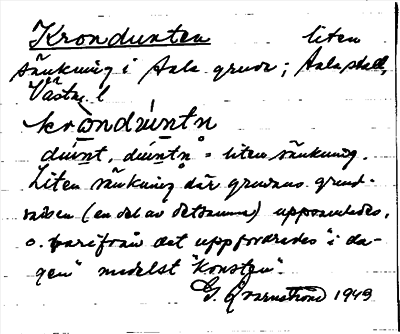 Krondunten liten
sänkning i Sala gruva; Sala stad,
Västm. l
kròndúntn
dúnt, dúntn = liten sänkning.
Liten sänkning där gruvans grund-
vatten (en del av detsamma) uppsamlades,
o. varifrån det uppfordrades "i da-
gen" medelst "Konsten".
G. Qvarnström 1949